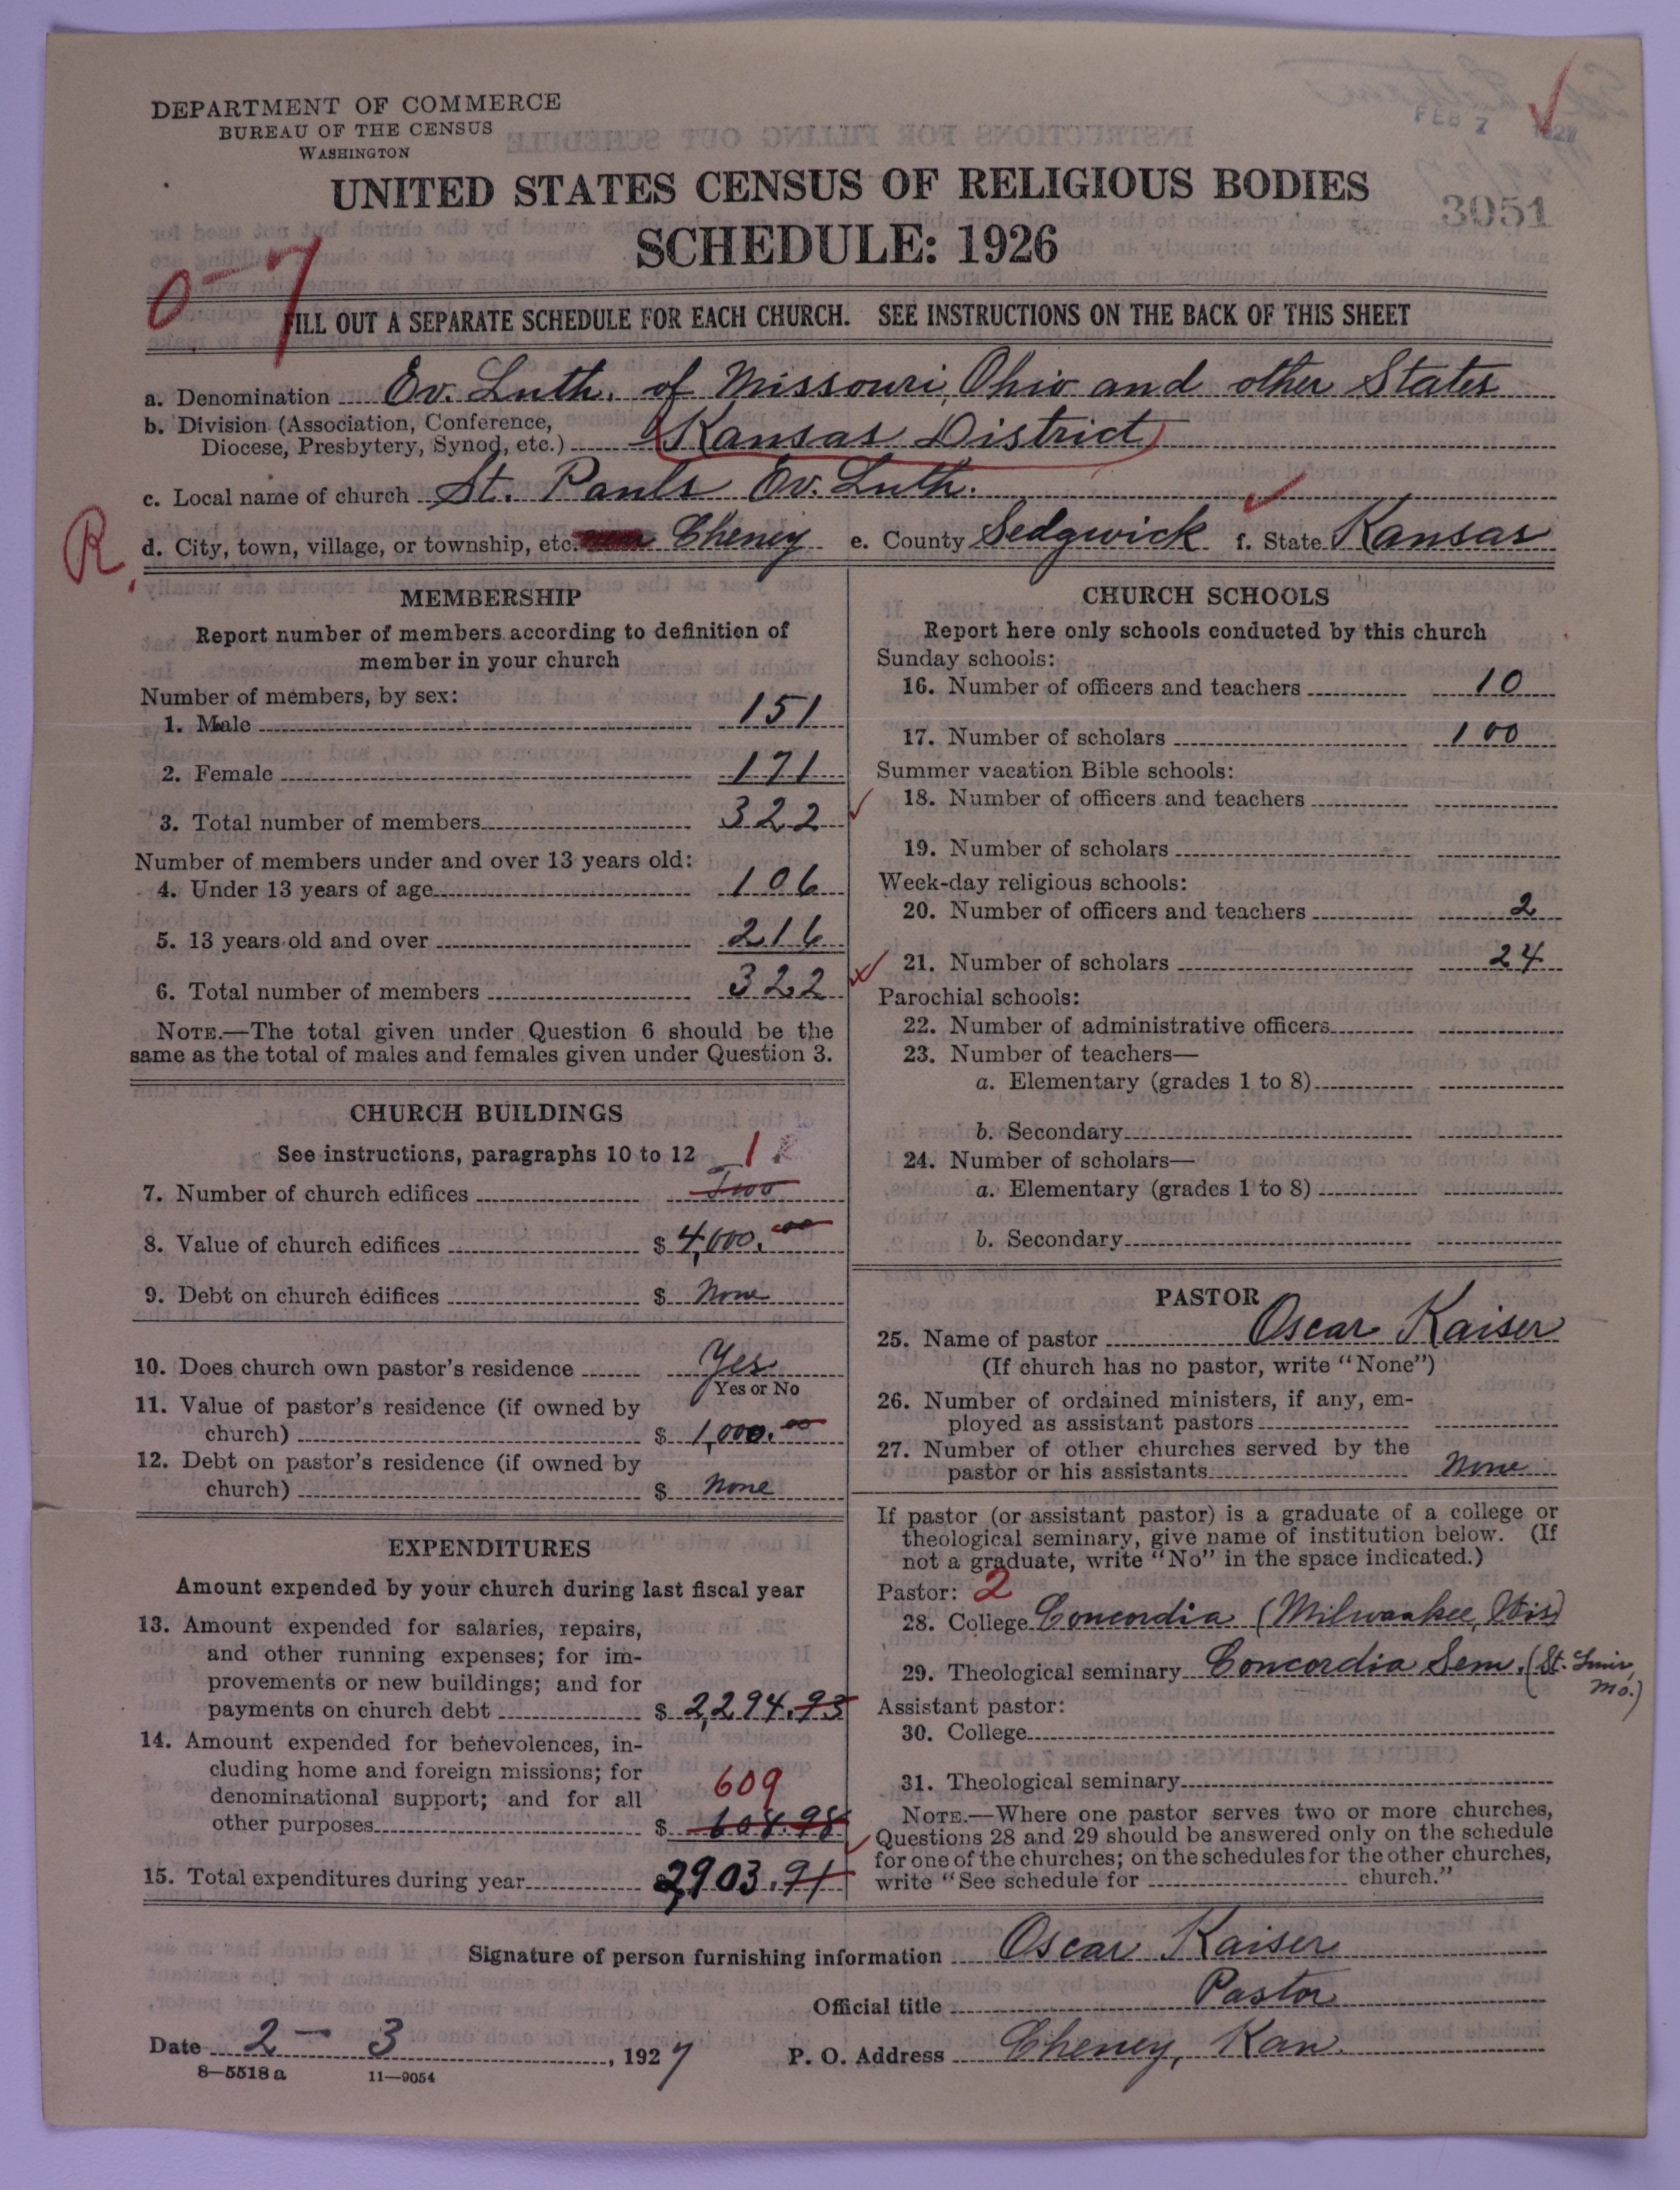 DEPARTMENT OF COMMERCE
BUREAU OF THE CENSUS
WASHINGTON
FEB 7 1927
UNITED STATES CENSUS OF RELIGIOUS BODIES
3051
SCHEDULE: 1926
0-7
FILL OUT A SEPARATE SCHEDULE FOR EACH CHURCH. SEE INSTRUCTIONS ON THE BACK OF THIS SHEET
a. Denomination Ev. Luth. of Missouri, Ohio and other States
b. Division (Association, Conference,
Diocese, Presbytery, Synod, etc.) Kansas District
c. Local name of church St. Pauls Ev. Luth.
R.
d. City, town, village, or township, etc. Cheney e. County Sedgwick f. State Kansas
MEMBERSHIP
Report number of members according to definition of
member in your church
Number of members, by sex:
1. Male 151
2. Female 171
3. Total number of members 322
Number of members under and over 13 years old:
4. Under 13 years of age 106
5. 13 years old and over 216
6. Total number of members 322
NOTE.—The total given under Question 6 should be the
same as the total of males and females given under Question 3.
CHURCH BUILDINGS
See instructions, paragraphs 10 to 12 1
7. Number of church edifices Two
8. Value of church edifices $ 4,000.00
9. Debt on church edifices $ None
10. Does church own pastor's residence Yes
Yes or No
11. Value of pastor's residence (if owned by
church) $ 1,000.00
12. Debt on pastor's residence (if owned by
church) $ None
EXPENDITURES
Amount expended by your church during last fiscal year
13. Amount expended for salaries, repairs,
and other running expenses; for im-
provements or new buildings; and for
payments on church debt $ 2,294.93
14. Amount expended for benevolences, in-
cluding home and foreign missions; for
denominational support; and for all 609
other purposes $ 608.98
15. Total expenditures during year 2903.91
CHURCH SCHOOLS
Report here only schools conducted by this church
Sunday schools:
16. Number of officers and teachers 10
17. Number of scholars 100
Summer vacation Bible schools:
18. Number of officers and teachers
19. Number of scholars
Week-day religious schools:
20. Number of officers and teachers 2
21. Number of scholars 24
Parochial schools:
22. Number of administrative officers
23. Number of teachers—
a. Elementary (grades 1 to 8)
b. Secondary
24. Number of scholars—
a. Elementary (grades 1 to 8)
b. Secondary
PASTOR
25. Name of pastor Oscar Kaiser
(If church has no pastor, write "None")
26. Number of ordained ministers, if any, em-
ployed as assistant pastors
27. Number of other churches served by the
pastor or his assistants None
If pastor (or assistant pastor) is a graduate of a college or
theological seminary, give name of institution below. (If
not a graduate, write "No" in the space indicated.)
Pastor: 2
28. College Concordia (Milwaukee, Wis)
29. Theological seminary Concordia Sem. (St. Louis,
Mo.)
Assistant pastor:
30. College
31. Theological seminary
NOTE.—Where one pastor serves two or more churches,
Questions 28 and 29 should be answered only on the schedule
for one of the churches; on the schedules for the other churches,
write "See schedule for church."
Signature of person furnishing information Oscar Kaiser
Official title Pastor
Date 2 - 3, 1927 P. O. Address Cheney, Kan.
8—5518 a 11—9054